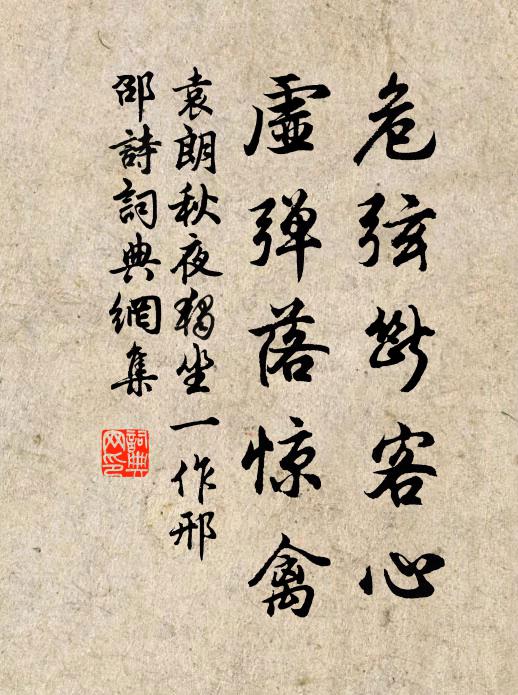 危弦断客心
虚弹落惊禽
袁朗秋夜獨坐一作邢
邵詩詞典網集
詞典网印